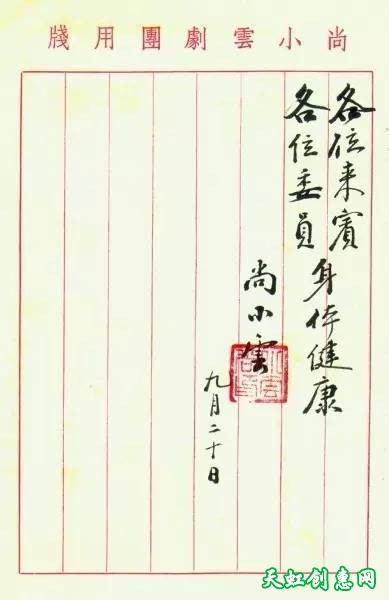 尚小雲劇團用牋
各位来賓
各位委員
身体健康
尚小雲
九月二十日
天虹创意网